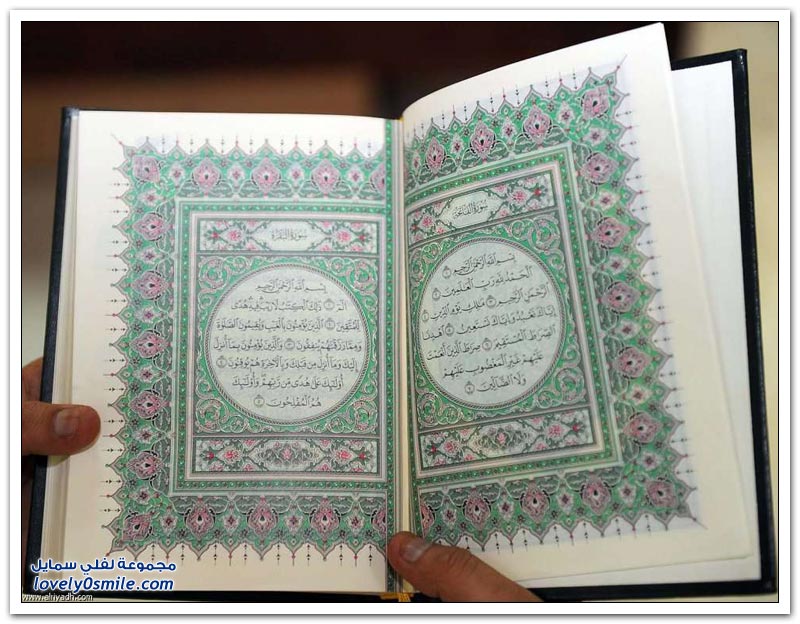 سورة الفاتحة
بسم الله الرحمن الرحيم ١
الحمد لله رب العلمين ٢
الرحمن الرحيم ٣ ملك يوم الدين ٤
إياك نعبد وإياك نستعين ٥ اهدنا
الصرط المستقيم ٦ صرط الذين أنعمت
عليهم غير المغضوب عليهم
ولا الضالين ٧
سورة البقرة
بسم الله الرحمن الرحيم
الم ١ ذلك الكتب لا ريب فيه هدى
للمتقين ٢ الذين يؤمنون بالغيب ويقيمون الصلوة
ومما رزقنهم ينفقون ٣ والذين يؤمنون بما أنزل
إليك وما أنزل من قبلك وبالآخرة هم يوقنون ٤
أولئك على هدى من ربهم وأولئك
هم المفلحون ٥
مجموعة لفلي سمايل
lovely0smile.com
www.alriyadh.com